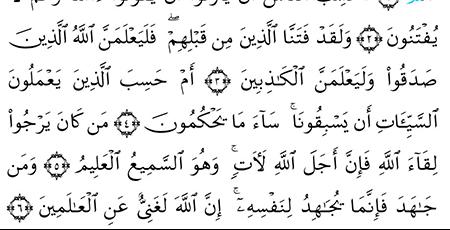 يُفْتَنُونَ ﴿٢﴾ وَلَقَدْ فَتَنَّا ٱلَّذِينَ مِن قَبْلِهِمْۖ فَلَيَعْلَمَنَّ ٱللَّهُ ٱلَّذِينَ
صَدَقُوا۟ وَلَيَعْلَمَنَّ ٱلْكَـٰذِبِينَ ﴿٣﴾ أَمْ حَسِبَ ٱلَّذِينَ يَعْمَلُونَ
ٱلسَّيِّـَٔاتِ أَن يَسْبِقُونَاۚ سَآءَ مَا يَحْكُمُونَ ﴿٤﴾ مَن كَانَ يَرْجُوا۟
لِقَآءَ ٱللَّهِ فَإِنَّ أَجَلَ ٱللَّهِ لَـَٔاتٍۚ وَهُوَ ٱلسَّمِيعُ ٱلْعَلِيمُ ﴿٥﴾ وَمَن
جَـٰهَدَ فَإِنَّمَا يُجَـٰهِدُ لِنَفْسِهِۦٓۚ إِنَّ ٱللَّهَ لَغَنِىٌّ عَنِ ٱلْعَـٰلَمِينَ ﴿٦﴾